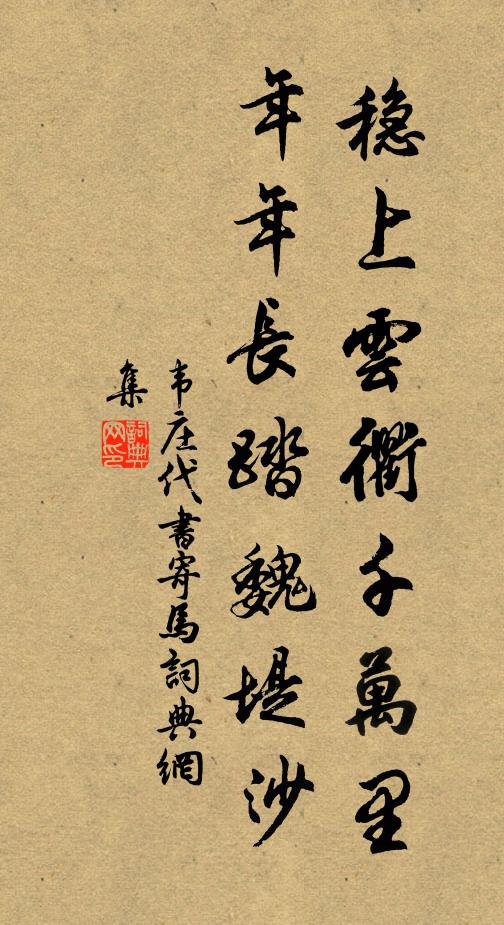 穏上雲衢千萬里
年年長踏魏堤沙
韦庄代書寄馬詞典網
集
詞典
网印